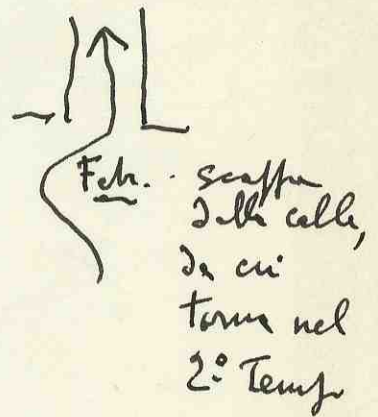 Feb. scappa
dalla calle,
da cui
torna nel
2º Tempo